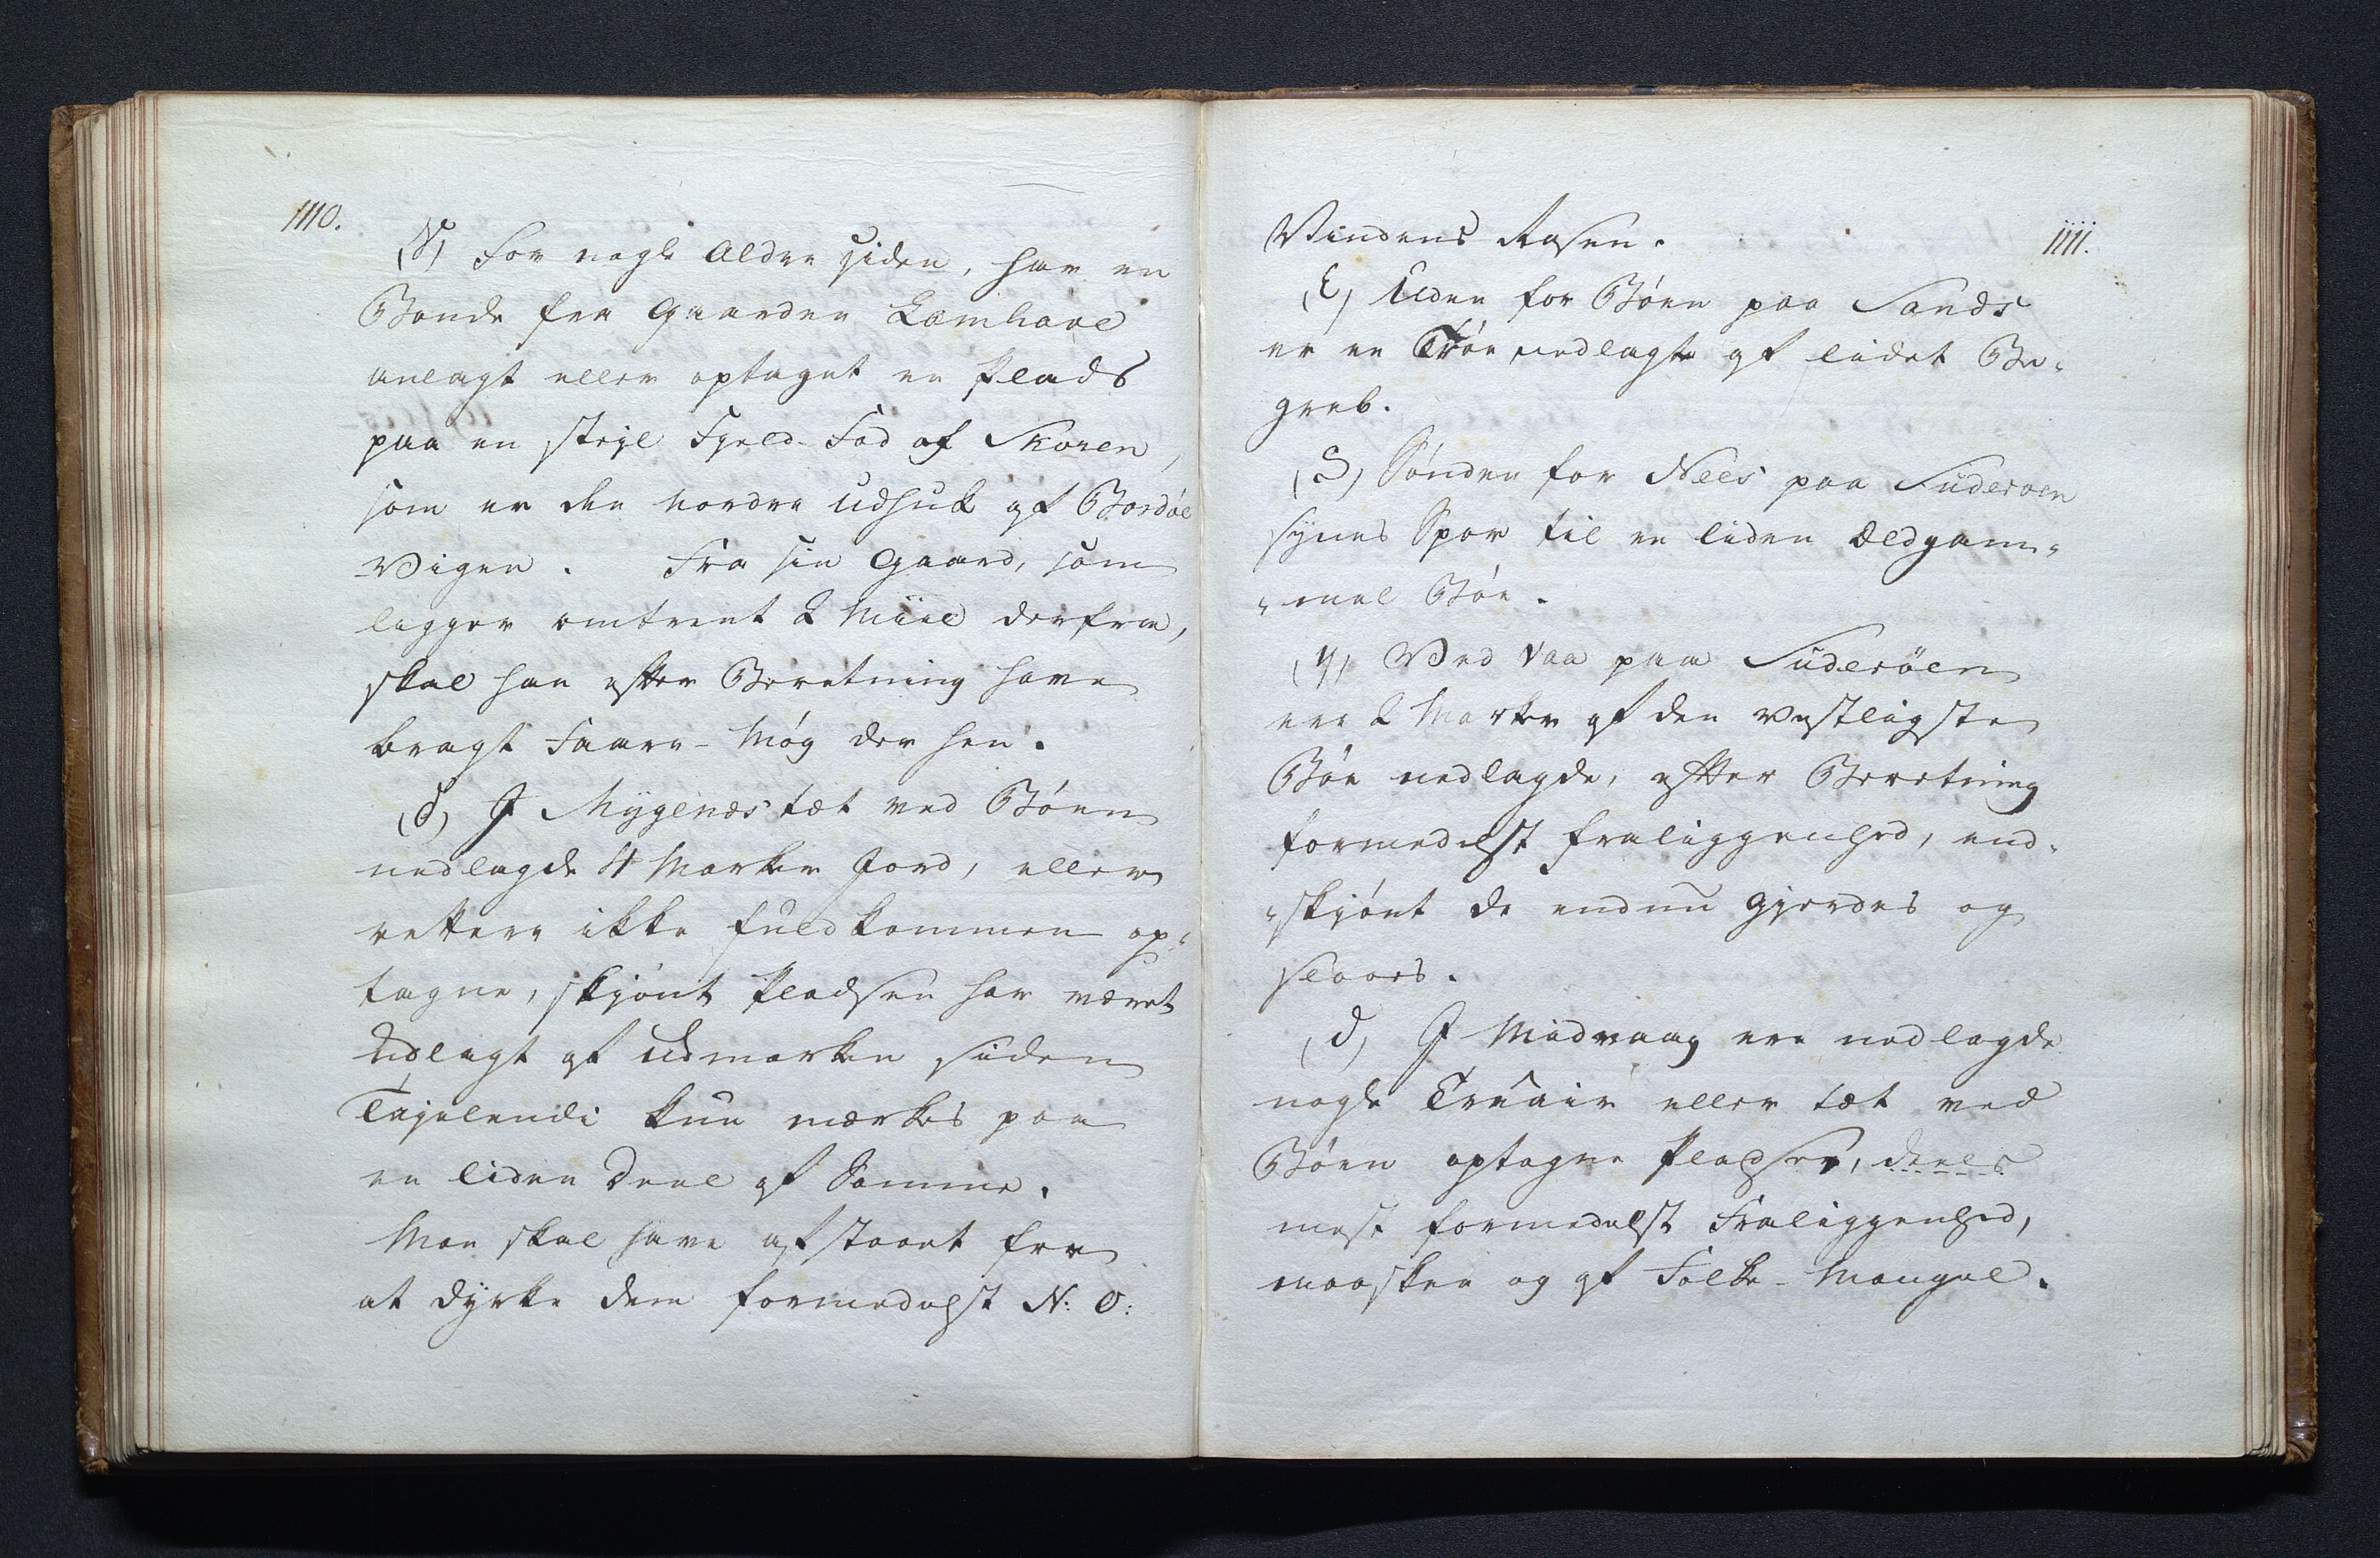 1110.
(γ) For nogle Aldre siden, har en
Bonde fra Gaarden Lamhave
anlagt eller optaget en Plads
paa en steil Fjeld-Fod af Skoren,
som er den nordre Udhuk af Bordøe
Vigen. Fra sin Gaard, som
ligger omtrent 2 Miil derfra,
skal han efter Beretning have
bragt Faare-Møg der hen.
(δ) I Mygenæs tæt ved Bøen
nedlagde 4 Marker Jord, eller
rettere ikke fuldkommen op-
tagne, skjønt Pladsen har været
udlagt af Udmarken siden
kun mærkes paa
en liden Deel af Samme.
Man skal have afstaaet fra
at dyrke dem formedelst N: O:
1111.
Vindens Rasen.
(ε) Uden for Bøen paa Sands
er en Trøe nedlagte af lidet Be-
greb.
(ς) Sønden for Nees paa Suderøen
synes Spor til en liden Ældgam-
mel Bøe.
(η) Ved Vaa paa Suderöen
ere 2 Marker af den vestligste
Bøe nedlagde, efter Beretning
formedelst Fraliggenhed, end-
skjønt de endnu gjerdes og
slaaes.
(ϑ) I Midvaag ere nedlagde
nogle Truair eller tæt ved
Bøen optagne Pladser, deels
mest formedelst Fraliggenhed,
maaskee og af Folke-Mangel.